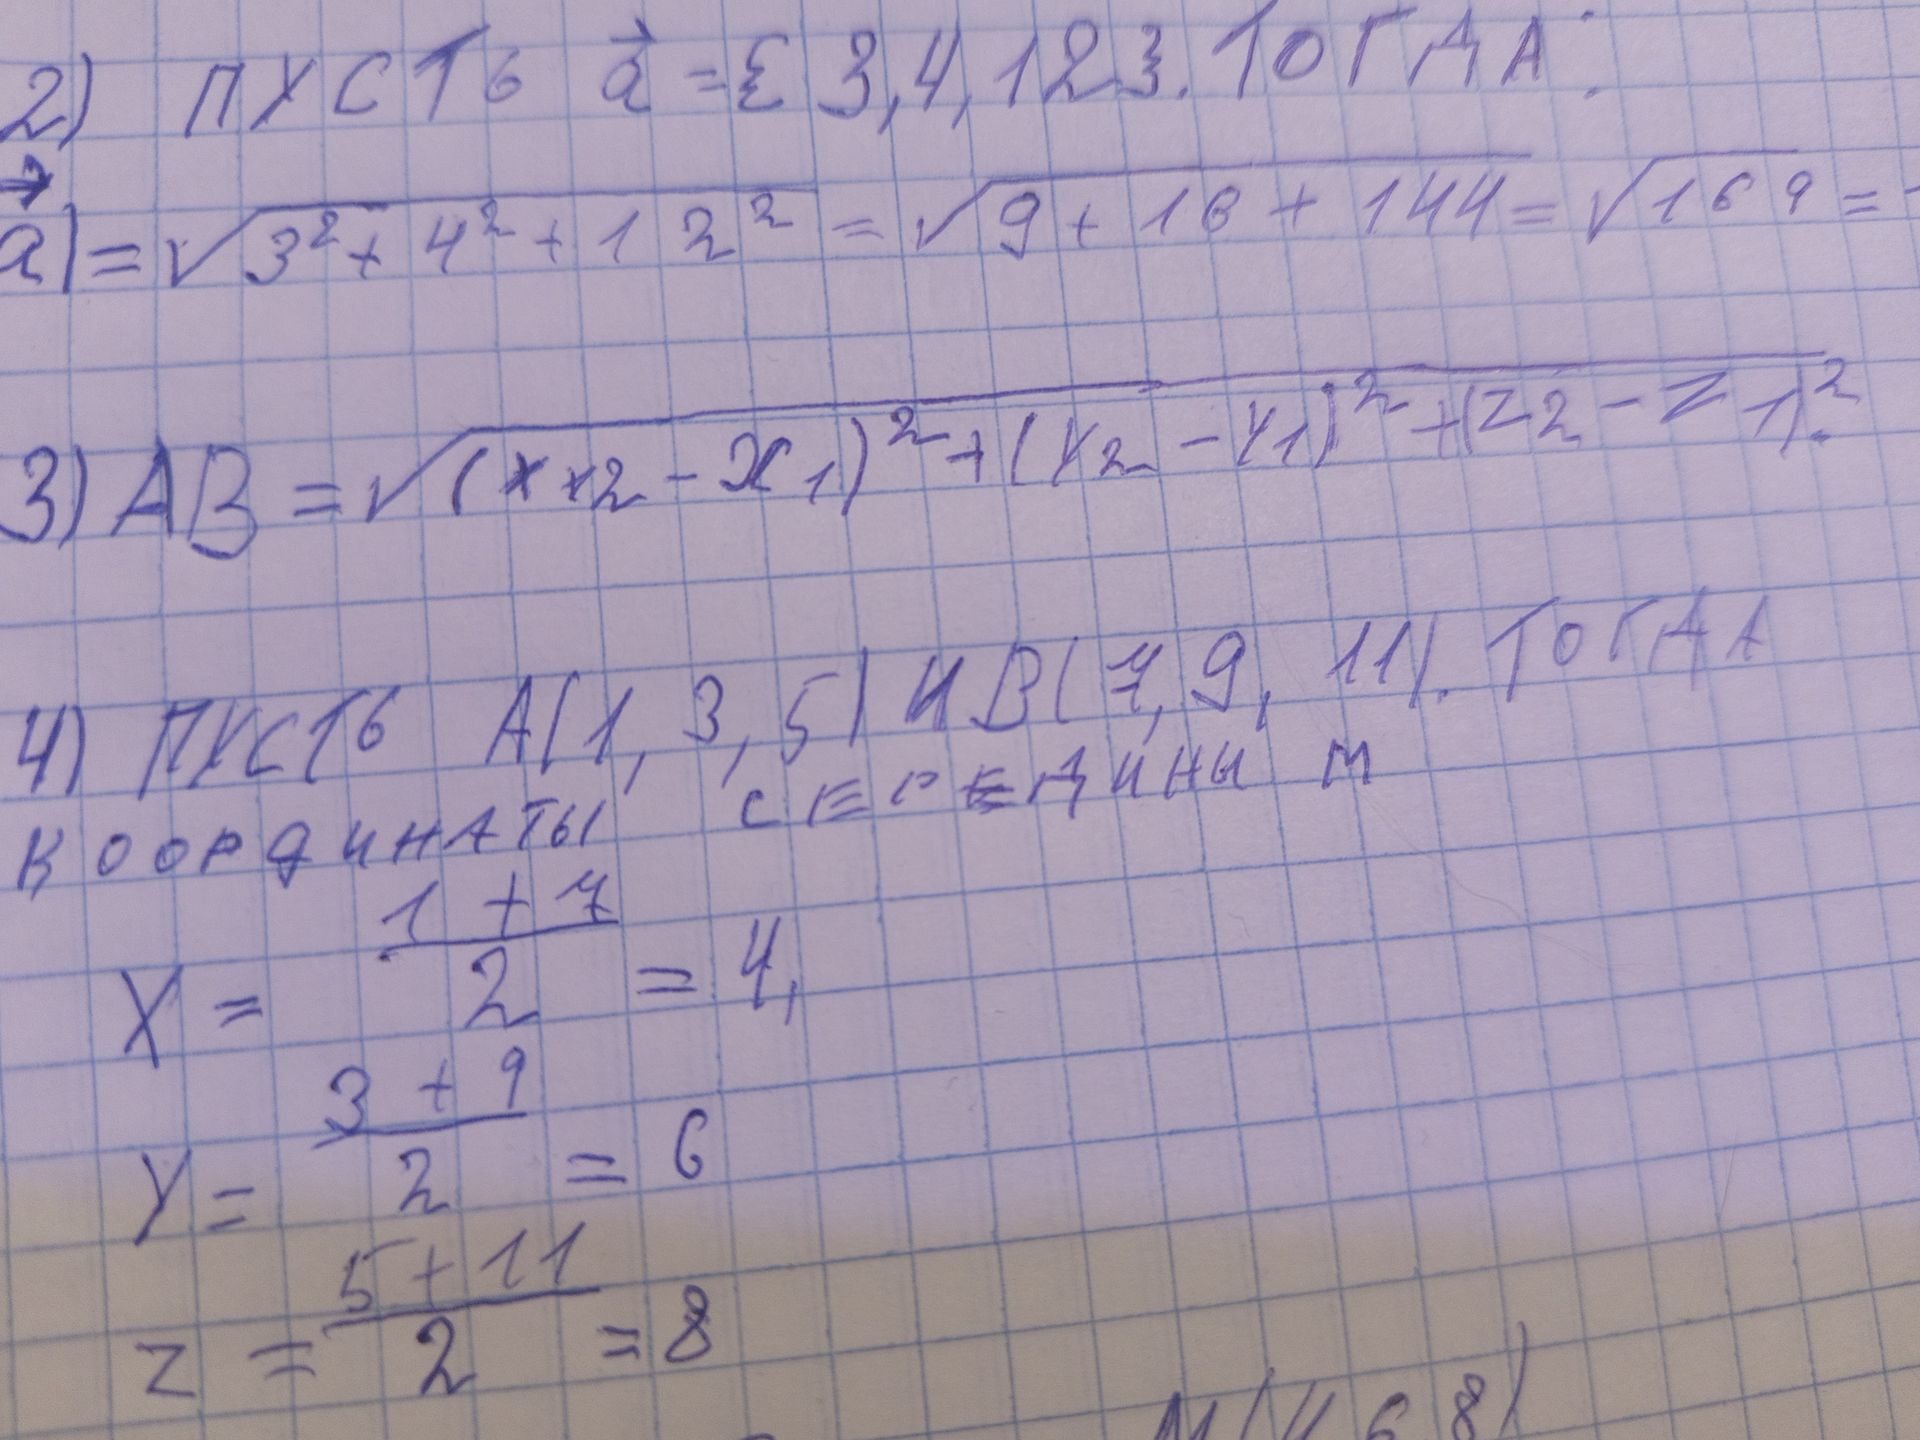 2) ПУСТЬ a⃗ = {3,4,12}. ТОГДА:
a⃗| = √(3² + 4² + 12²) = √(9 + 16 + 144) = √169 =
3) AB = √((x x2 - x1)² + (Y2 - Y1)² + (Z2 - Z1)².
4) ПУСТЬ A(1, 3, 5) И B(7, 9, 11). ТОГДА
КООРДИНАТЫ СЕРЕДИНЫ М
X = (1 + 7)/2 = 4,
Y = (3 + 9)/2 = 6
Z = (5 + 11)/2 = 8
M(4 6 8)